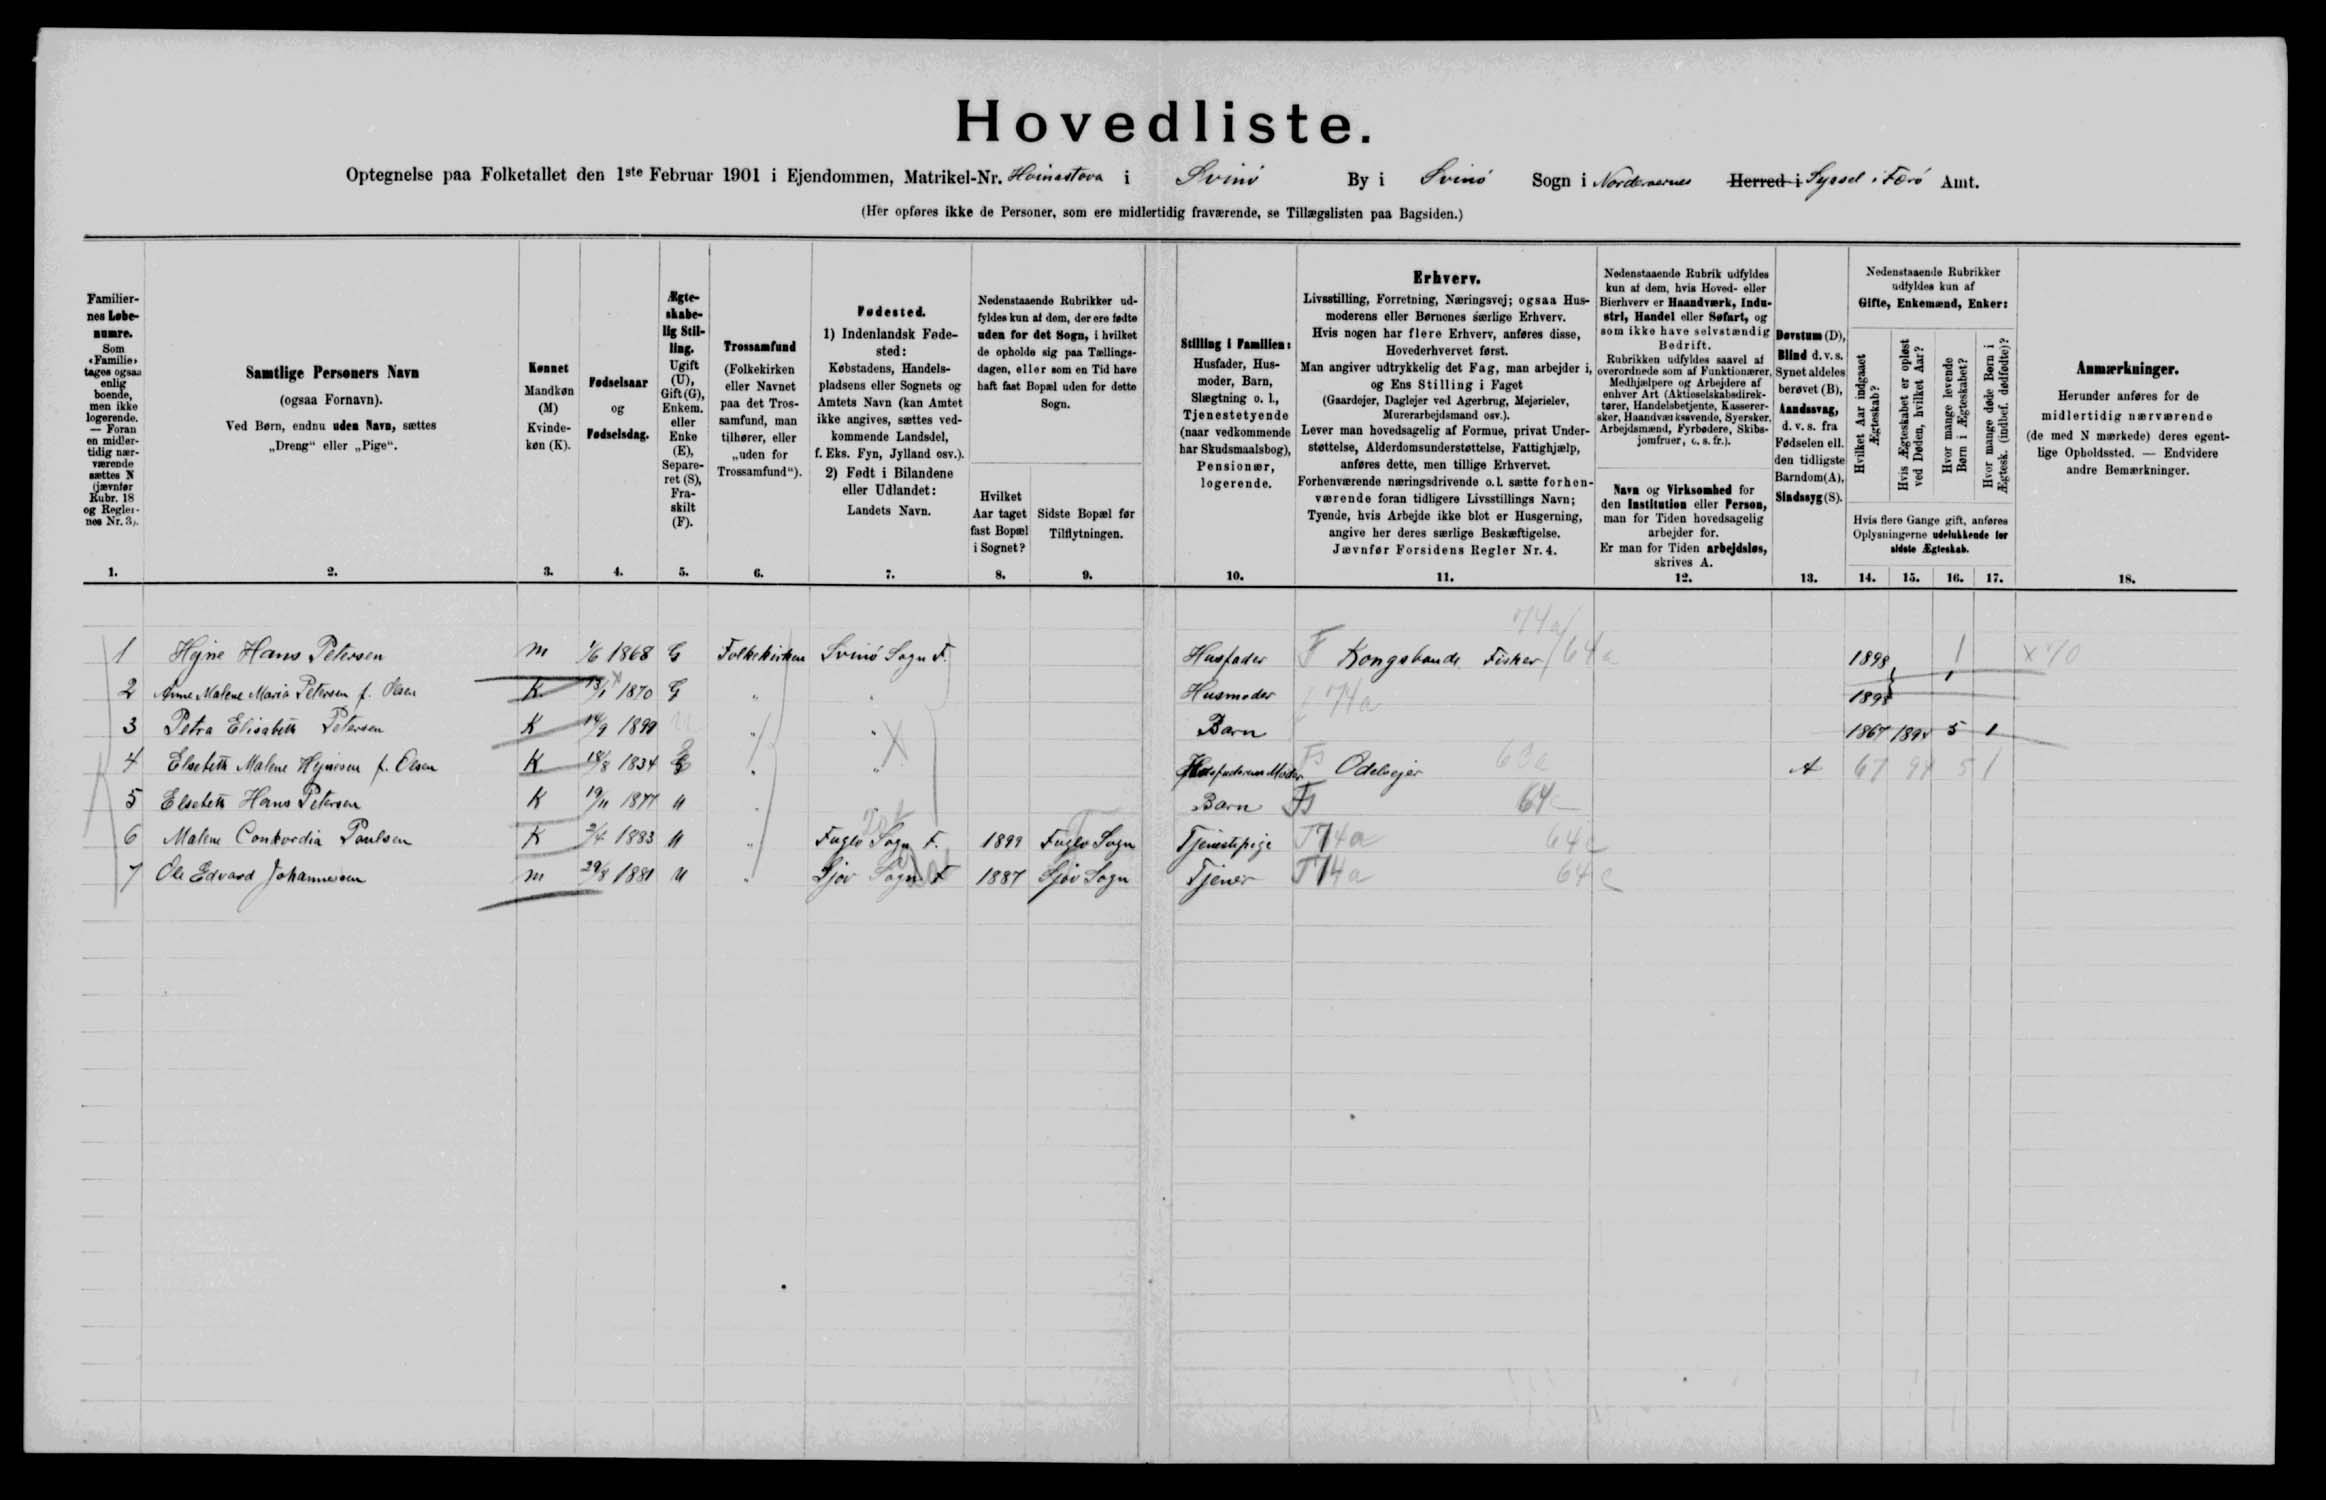 Hovedliste.
Optegnelse paa Folketallet den 1ste Februar 1901 i Ejendommen, Matrikel-Nr. Hoinastova i Svinö By i Svinö Sogn i Norderoernes Herred i Syssel i Færö Amt.
(Her opføres ikke de Personer, som ere midlertidig fraværende, se Tillægslisten paa Bagsiden.)
Familier-
nes Løbe-
numre.
Som
«Familie»
tages ogsaa
enlig
boende,
men ikke
logerende.
— Foran
en midler-
tidig nær-
værende
sættes N
(jævnfør
Rubr. 18
og Regler-
nes Nr. 3).
1.
Samtlige Personers Navn
(ogsaa Fornavn).
Ved Børn, endnu uden Navn, sættes
„Dreng“ eller „Pige“.
2.
Kønnet
Mandkøn
(M)
Kvinde-
køn (K).
3.
Fødselsaar
og
Fødselsdag.
4.
Ægte-
skabe-
lig Stil-
ling.
Ugift
(U),
Gift (G),
Enkem.
eller
Enke
(E),
Separe-
ret (S),
Fra-
skilt
(F).
5.
Trossamfund
(Folkekirken
eller Navnet
paa det Tros-
samfund, man
tilhører, eller
„uden for
Trossamfund“).
6.
Fødested.
1) Indenlandsk Føde-
sted:
Købstadens, Handels-
pladsens eller Sognets og
Amtets Navn (kan Amtet
ikke angives, sættes ved-
kommende Landsdel,
f. Eks. Fyn, Jylland osv.).
2) Født i Bilandene
eller Udlandet:
Landets Navn.
7.
Nedenstaaende Rubrikker ud-
fyldes kun af dem, der ere fødte
uden for det Sogn, i hvilket
de opholde sig paa Tællings-
dagen, eller som en Tid have
haft fast Bopæl uden for dette
Sogn.
Hvilket
Aar taget
fast Bopæl
i Sognet?
8.
Sidste Bopæl før
Tilflytningen.
9.
Stilling i Familien:
Husfader, Hus-
moder, Barn,
Slægtning o. l.,
Tjenestetyende
(naar vedkommende
har Skudsmaalsbog),
Pensionær,
logerende.
10.
Erhverv.
Livsstilling, Forretning, Næringsvej; ogsaa Hus-
moderens eller Børnenes særlige Erhverv.
Hvis nogen har flere Erhverv, anføres disse,
Hovederhvervet først.
Man angiver udtrykkelig det Fag, man arbejder i,
og Ens Stilling i Faget
(Gaardejer, Daglejer ved Agerbrug, Mejerielev,
Murerarbejdsmand osv.).
Lever man hovedsagelig af Formue, privat Under-
støttelse, Alderdomsunderstøttelse, Fattighjælp,
anføres dette, men tillige Erhvervet.
Forhenværende næringsdrivende o. l. sætte forhen-
værende foran tidligere Livsstillings Navn;
Tyende, hvis Arbejde ikke blot er Husgerning,
angive her deres særlige Beskæftigelse.
Jævnfør Forsidens Regler Nr. 4.
11.
Nedenstaaende Rubrik udfyldes
kun af dem, hvis Hoved- eller
Bierhverv er Haandværk, Indu-
stri, Handel eller Søfart, og
som ikke have selvstændig
Bedrift.
Rubrikken udfyldes saavel af
overordnede som af Funktionærer,
Medhjælpere og Arbejdere af
enhver Art (Aktieselskabsdirek-
tører, Handelsbetjente, Kasserer-
sker, Haandværkssvende, Syersker,
Arbejdsmænd, Fyrbødere, Skibs-
jomfruer, o. s. fr.).
Navn og Virksomhed for
den Institution eller Person,
man for Tiden hovedsagelig
arbejder for.
Er man for Tiden arbejdsløs,
skrives A.
12.
Døvstum (D),
Blind d. v. s.
Synet aldeles
berøvet (B),
Aandssvag,
d. v. s. fra
Fødselen ell.
den tidligste
Barndom (A),
Sindssyg (S).
13.
Nedenstaaende Rubrikker
udfyldes kun af
Gifte, Enkemænd, Enker:
Hvilket Aar indgaaet
Ægteskab?
Hvis Ægteskabet er opløst
ved Døden, hvilket Aar?
Hvor mange levende
Børn i Ægteskabet?
Hvor mange døde Børn i
Ægtesk. (indbef. dødfødte)?
Hvis flere Gange gift, anføres
Oplysningerne udelukkende for
sidste Ægteskab.
14. 15. 16. 17.
Anmærkninger.
Herunder anføres for de
midlertidig nærværende
(de med N mærkede) deres egent-
lige Opholdssted. — Endvidere
andre Bemærkninger.
18.
74a
1 Hejne Hans Petersen M 1/6 1868 G Folkekirken Svinö Sogn F. Husfader F Kongsbonde Fisker 64a 1898 1 x 70
2 Anne Malene Maria Petersen f. Olsen K 13/1 1870 G „ „ Husmoder 74a 1898 1
3 Petra Elisabeth Petersen K 14/9 1899 U „ „ Barn 1867 1894 5 1
4 Elsebeth Malene Hejnesen f. Olsen K 18/8 1834 E „ „ Husfaderens Moder Fs Odelsejer 60a A 67 94 5 1
5 Elsebeth Hans Petersen K 19/11 1877 U „ Barn Fs 64
6 Malene Conkordia Poulsen K 2/4 1883 U „ Fuglö Sogn F. 1899 Fuglö Sogn Tjenestepige T74a 64c
7 Ole Edvard Johannesen M 29/8 1881 U „ Sjov Sogn F 1887 Sjov Sogn Tjener T74a 64c